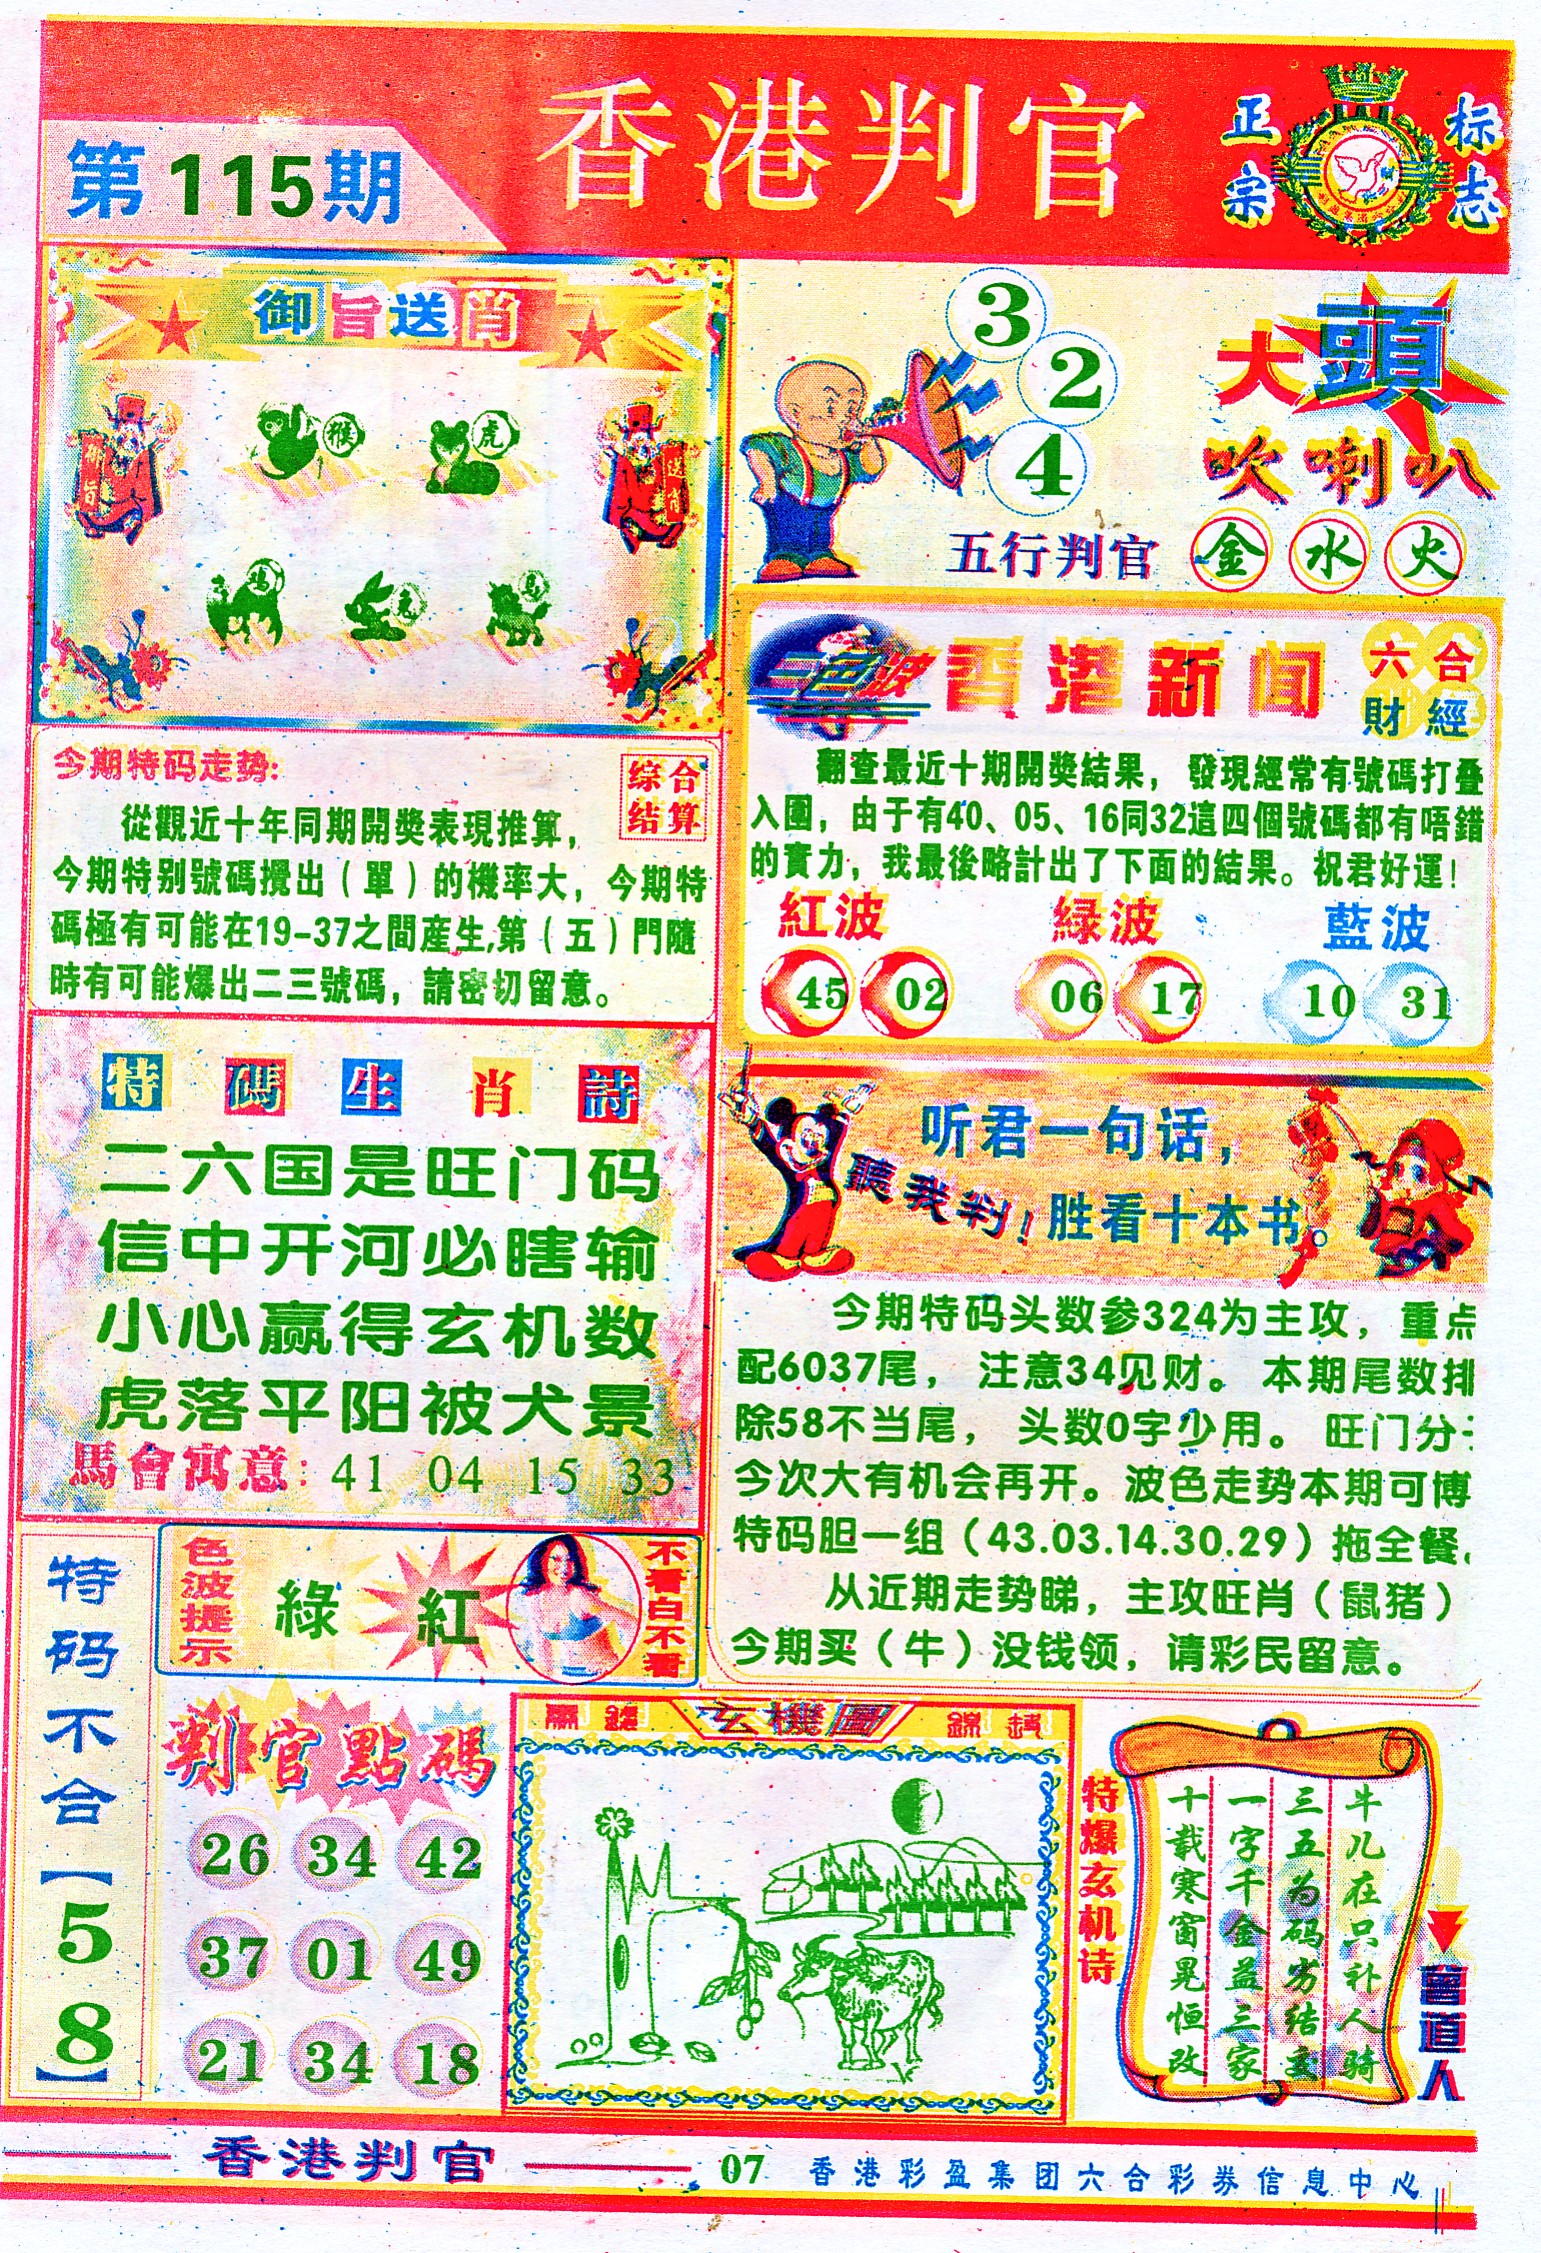 香港判官
第115期
正宗
标志
御旨送肖
猴
虎
御旨
送肖
鸡
兔
馬
3
2
4
大頭
吹喇叭
五行判官 金 水 火
今期特码走势:
综合
结算
從觀近十年同期開獎表現推算，
今期特别號碼攪出（單）的機率大，今期特
碼極有可能在19-37之間産生,第（五）門隨
時有可能爆出二三號碼，請密切留意。
三色波
香港新闻
六合
財經
翻查最近十期開獎結果，發現經常有號碼打叠
入圍，由于有40、05、16同32這四個號碼都有唔錯
的實力，我最後略計出了下面的結果。祝君好運！
紅波 緑波 藍波
45 02 06 17 10 31
特碼生肖詩
二六国是旺门码
信中开河必瞎输
小心赢得玄机数
虎落平阳被犬景
馬會寓意: 41 04 15 33
听君一句话，
聽我判！
胜看十本书。
今期特码头数参324为主攻，重点
配6037尾，注意34见财。本期尾数排
除58不当尾，头数0字少用。旺门分
今次大有机会再开。波色走势本期可博
特码胆一组（43.03.14.30.29）拖全餐
从近期走势睇，主攻旺肖（鼠猪）
今期买（牛）没钱领，请彩民留意。
特码不合【58】
色波提示
綠 紅
不看白不看
判官點碼
26 34 42
37 01 49
21 34 18
玄機圖
特爆玄机诗
牛儿在只补人骑
三五为码穷结交
一字千金益三家
十载寒窗晃恒改
曾道人
香港判官
07
香港彩盈集团六合彩券信息中心